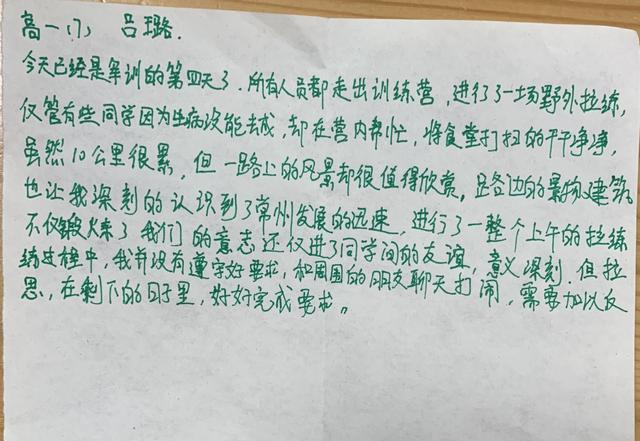 高一(7) 吕璐.
今天已经是军训的第四天了.所有人员都走出训练营,进行了一场野外拉练,
仅管有些同学因为生病没能去成,却在营内帮忙,将食堂打扫的干干净净,
虽然10公里很累,但一路上的风景却很值得欣赏,路边的景物建筑
也让我深刻的认识到了常州发展的迅速,进行了一整个上午的拉练
不仅锻火来了我们的意志还仅进了同学间的友谊,意义深刻.但拉
练过程中,我并没有遵守好要求,和周围的朋友聊天打闹,需要加以反
思,在剩下的日子里,好好完成要求。